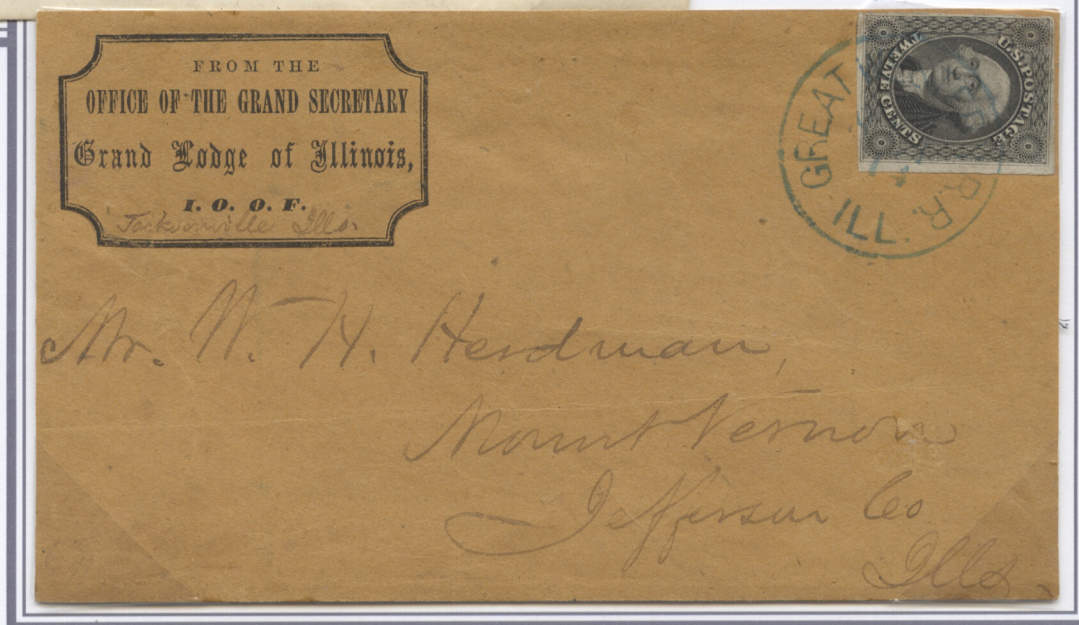 FROM THE
OFFICE OF THE GRAND SECRETARY
Grand Lodge of Illinois,
I. O. O. F.
Jacksonville Ills.
U.S. POSTAGE
TWELVE CENTS
GREAT R.R.
14
ILL.
Mr. W. H. Herdman,
Mount Vernon
Jefferson Co
Ills